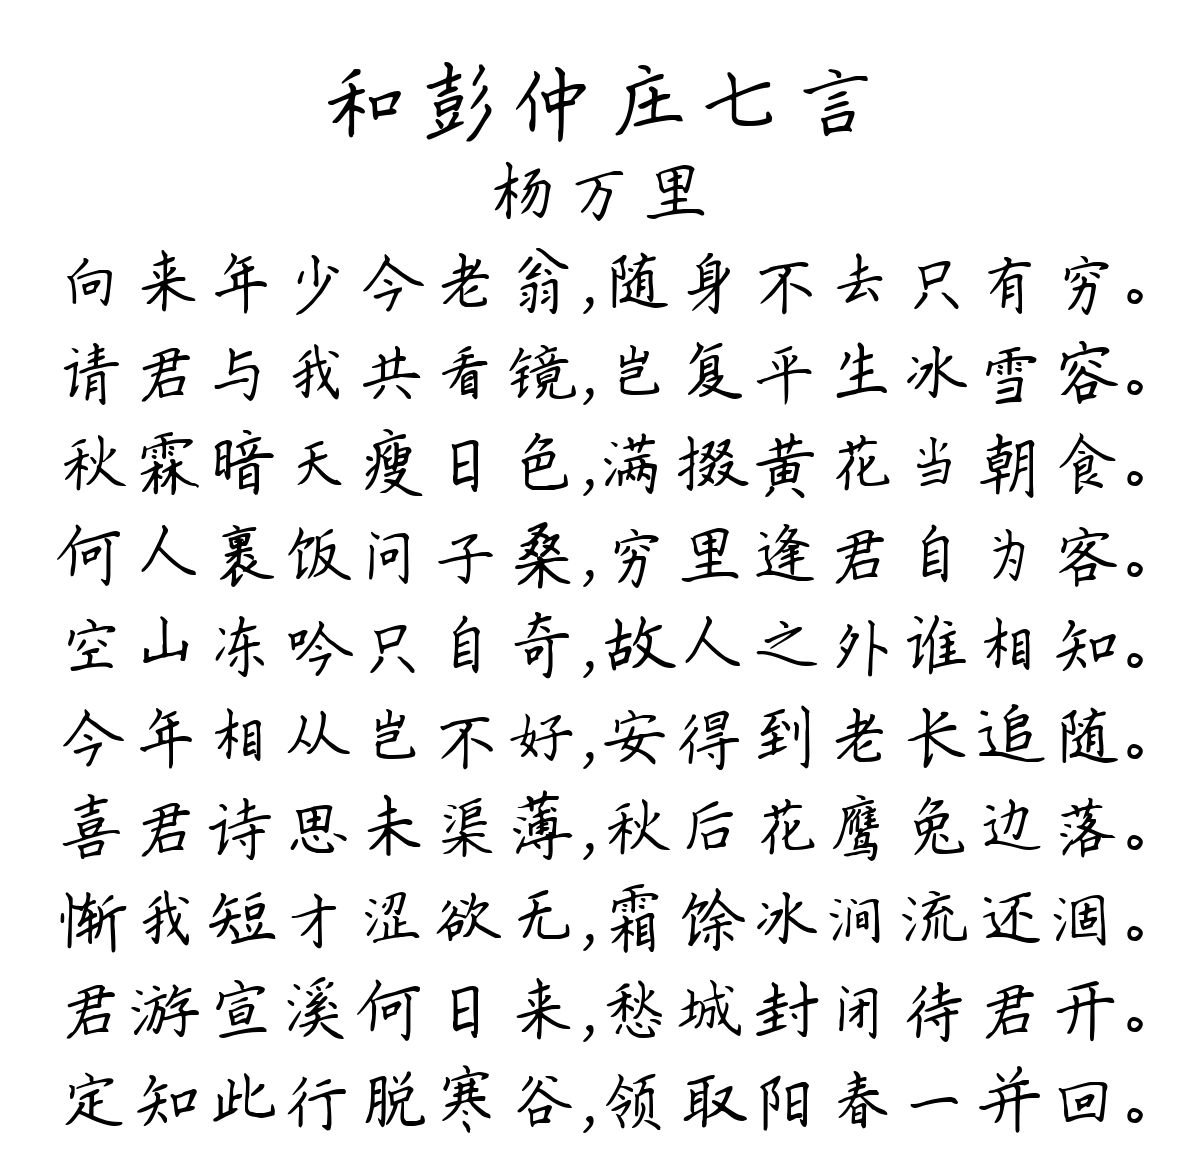 和彭仲庄七言
杨万里
向来年少今老翁,随身不去只有穷。
请君与我共看镜,岂复平生冰雪容。
秋霖暗天瘦日色,满掇黄花当朝食。
何人裹饭问子桑,穷里逢君自为客。
空山冻吟只自奇,故人之外谁相知。
今年相从岂不好,安得到老长追随。
喜君诗思未渠薄,秋后花鹰兔边落。
惭我短才涩欲无,霜馀冰涧流还涸。
君游宣溪何日来,愁城封闭待君开。
定知此行脱寒谷,领取阳春一并回。